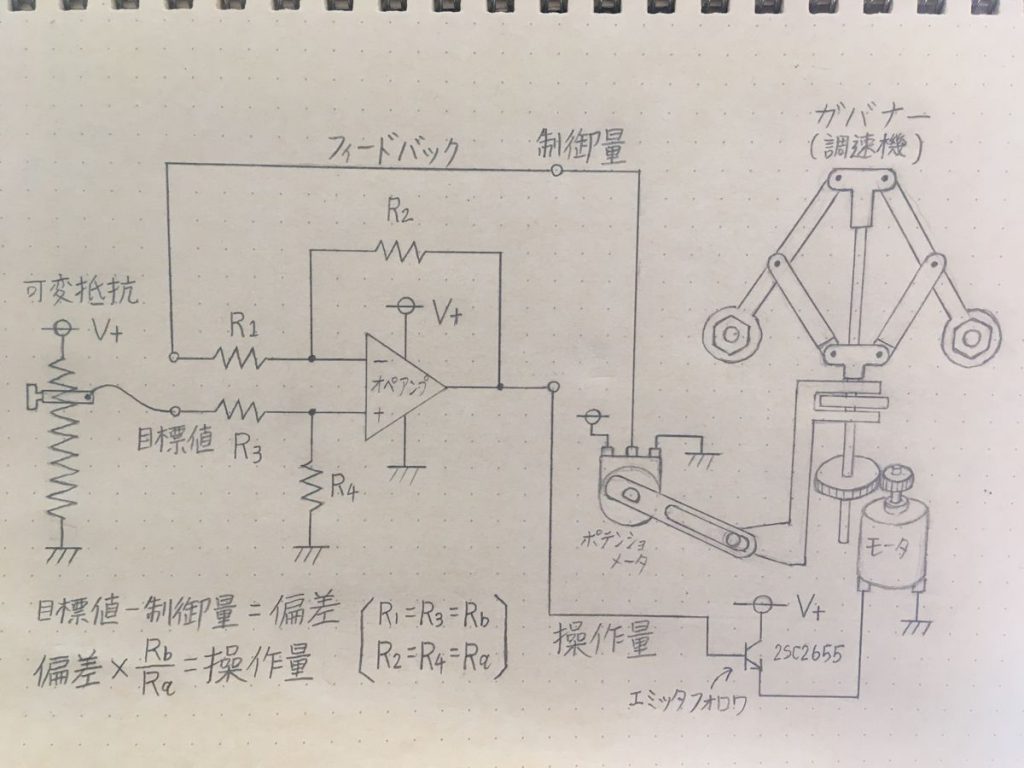 ガバナー
(調速機)
フィードバック
制御量
R2
可変抵抗
V+
R1
V+
オペアンプ
−
+
目標値
R3
R4
ポテンショ
メータ
モータ
目標値−制御量=偏差
偏差×Rb/Ra=操作量
R1=R3=Rb
R2=R4=Ra
操作量
V+
2SC2655
エミッタフォロワ